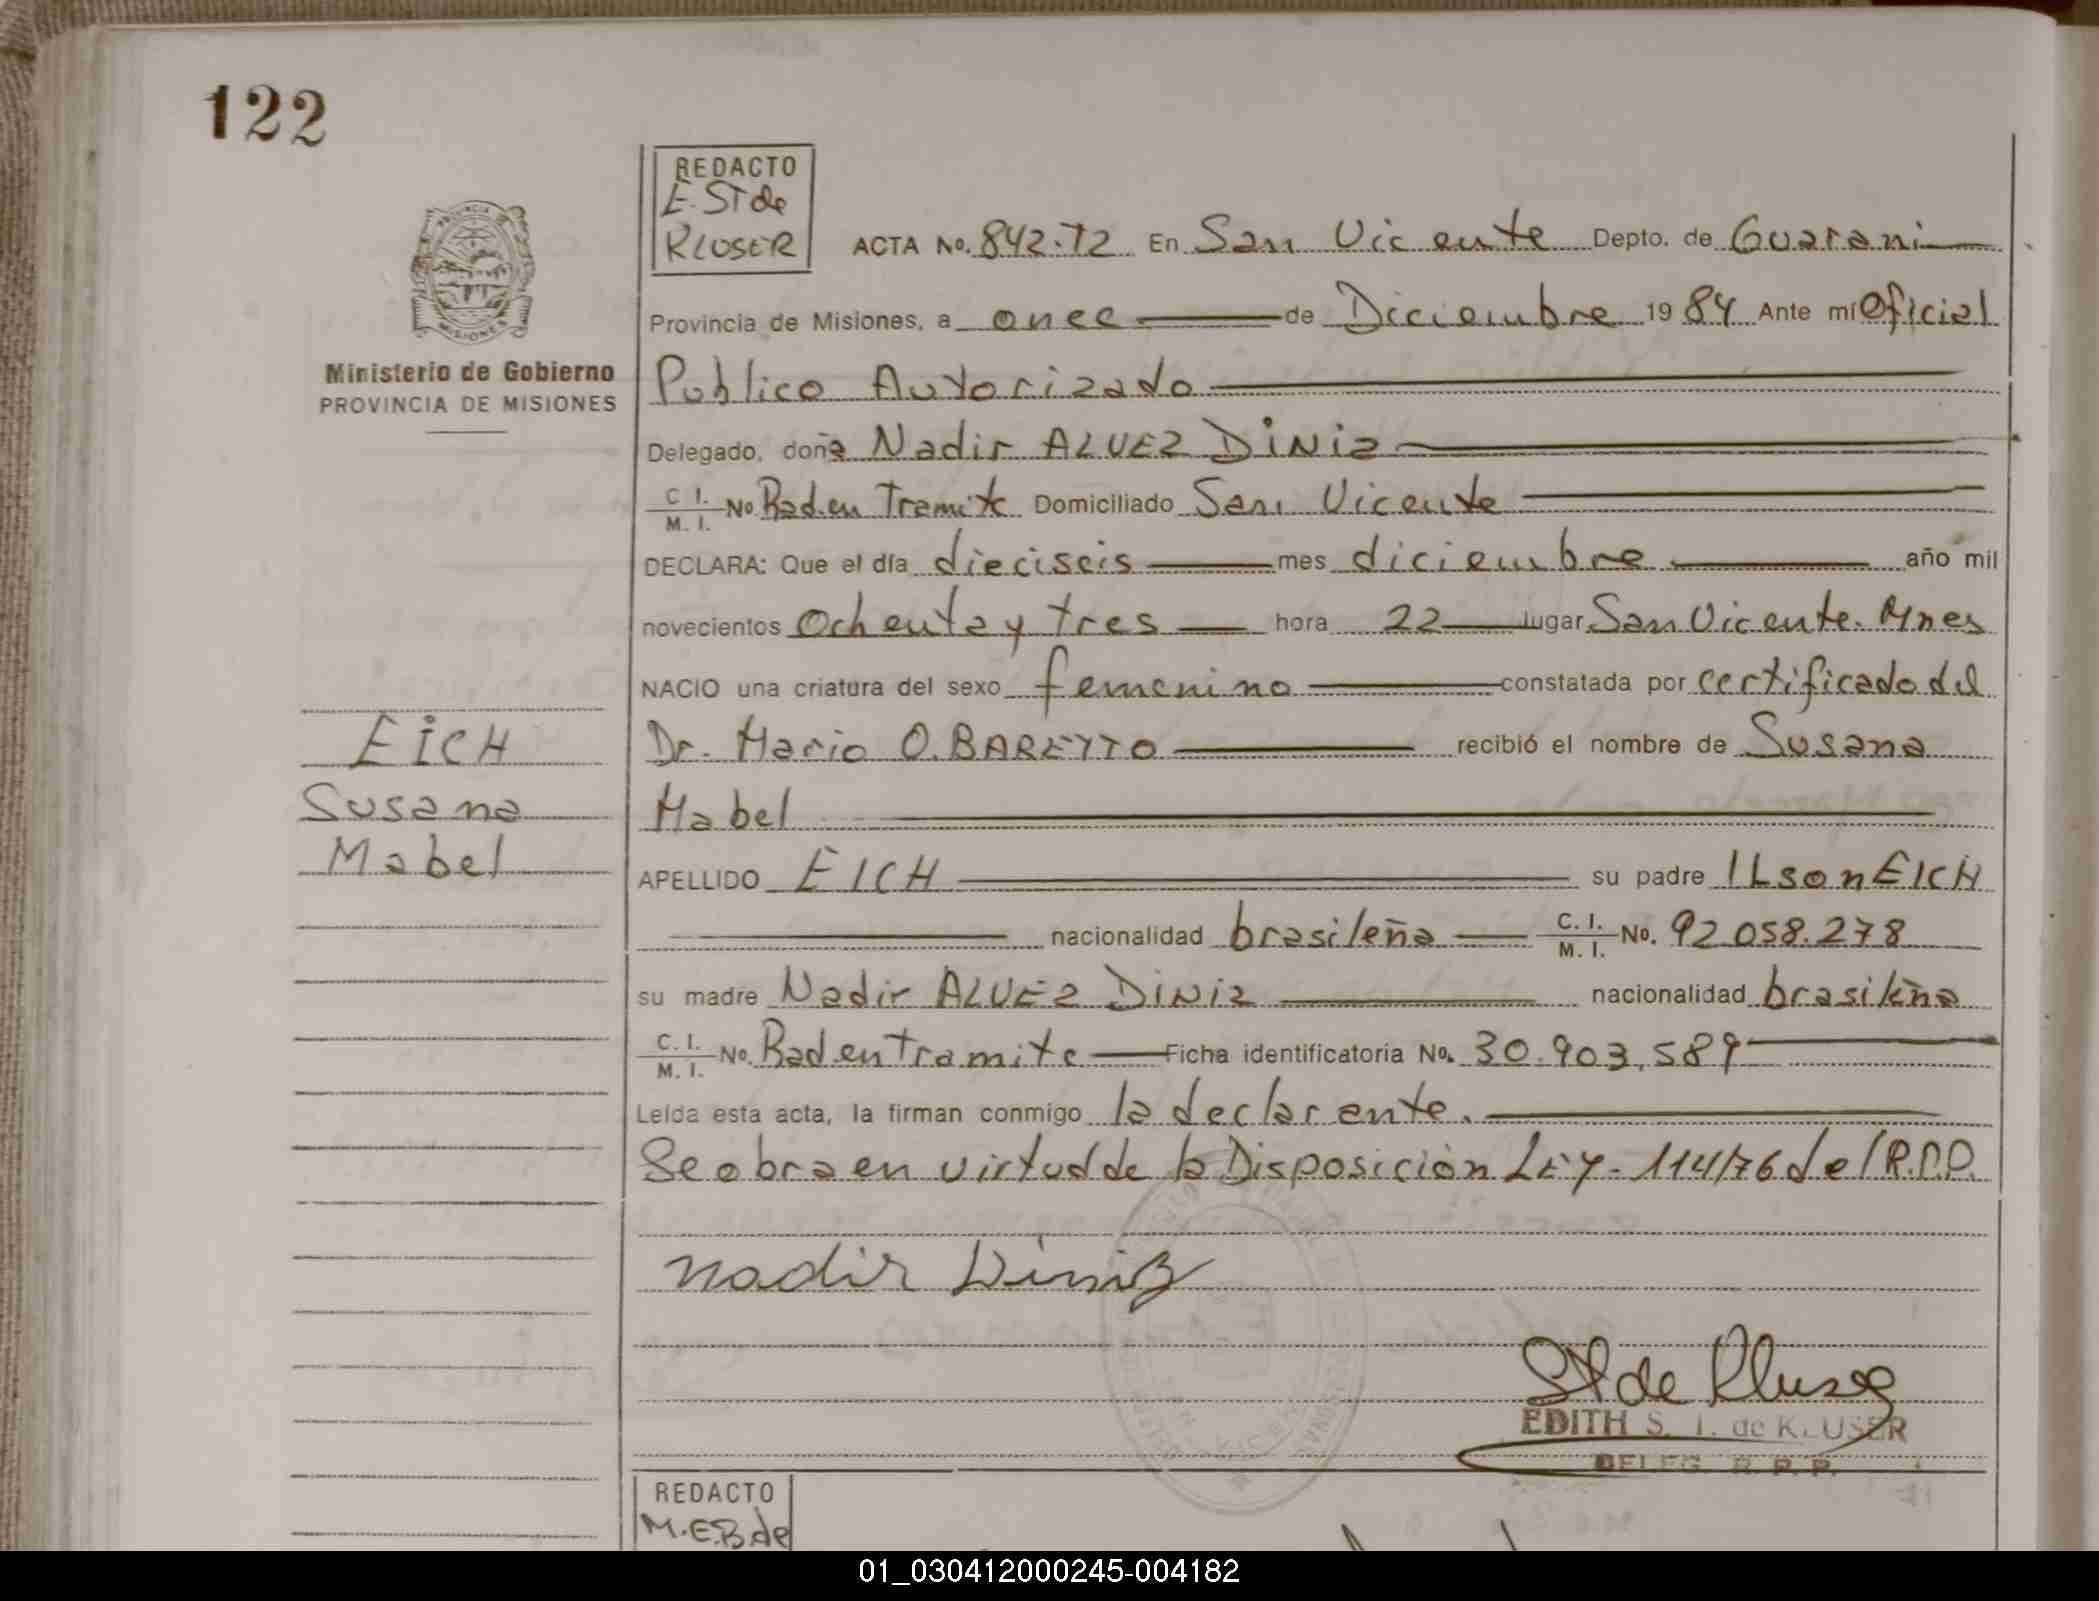 122
REDACTO
E. ST de
KLUSER
ACTA No. 842.T2 En San Vicente Depto. de Guarani
Provincia de Misiones, a once de Diciembre 1984 Ante mi Oficial
Publico Autorizado
Ministerio de Gobierno
PROVINCIA DE MISIONES
Delegado, doña Nadir ALVEZ DiNiz
C I. M. I. No Rad. en Tramite Domiciliado San Vicente
DECLARA: Que el día dieciseis mes diciembre año mil
novecientos Ochenta y tres hora 22 lugar San Vicente. Mnes
NACIO una criatura del sexo femenino constatada por certificado del
Dr. Mario O. BAREYTO recibió el nombre de Susana
Mabel
EiCH
Susana
Mabel
APELLIDO EICH su padre ILson EICH
nacionalidad brasileña C. I. M. I. No. 92 058.278
su madre Nadir ALVEZ DiNiz nacionalidad brasileña
C. I. M. I. No. Rad en Tramite Ficha identificatoria No. 30.903.589
Leída esta acta, la firman conmigo la declarente.
Se obra en virtud de la Disposición LEY - 114/76 del R.P.P.
Nadir Diniz
St de Kluser
EDITH S. T. de KLUSER
DELEG. R. P. P.
REDACTO
M.E.B.de
01_030412000245-004182